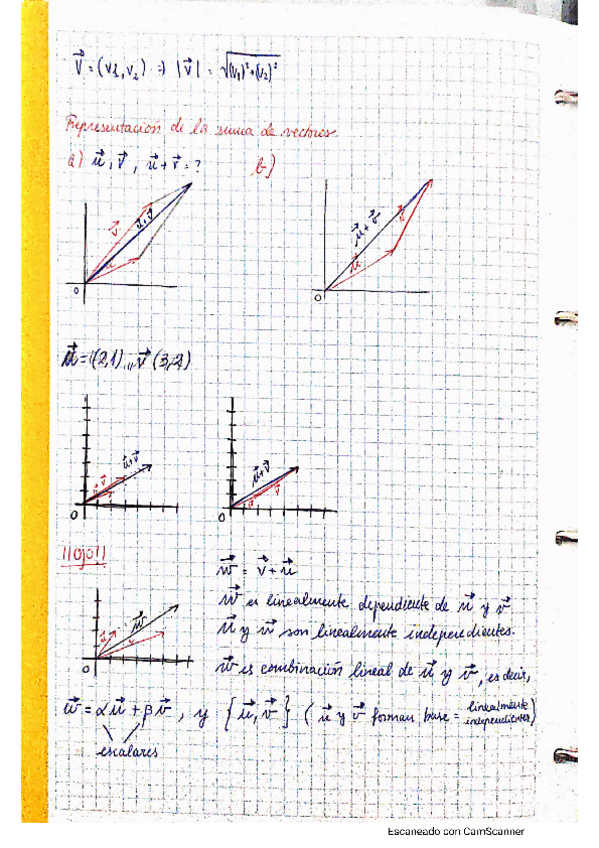 v⃗ = (v1, v2) ⇒ |v⃗| = √(v1)²+(v2)²
Representación de la suma de vectores
a) u⃗, v⃗, u⃗ + v⃗ = ? b)
v⃗ u⃗+v⃗ u
0
u⃗ + v⃗ u⃗ v
0
u⃗ = (2,1) ,, v⃗ (3,2)
u⃗ v⃗ u⃗+v⃗
0
u⃗+v⃗ u v
0
!!ojo!!
w⃗ = v⃗ + u⃗
w⃗ es linealmente dependiente de u⃗ y v⃗
u⃗ y u⃗ son linealmente independientes.
u⃗ w⃗ v
0
w⃗ es combinación lineal de u⃗ y v⃗, es decir,
w⃗ = αu⃗ + βv⃗, y {u⃗, v⃗} (u⃗ y v⃗ forman base = linealmente independientes)
escalares
Escaneado con CamScanner